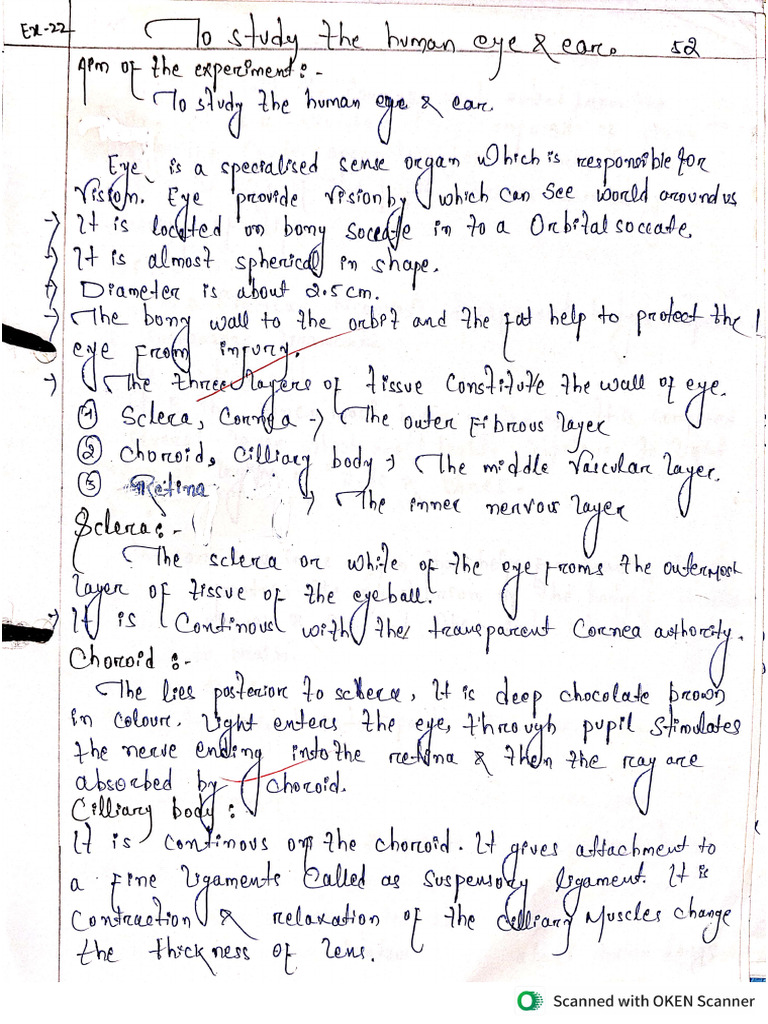 Ex-22
To study the human eye & ear. 52
Aim of the experiment:-
To study the human eye & ear.
Eye is a specialised sense organ which is responsible for
vision. Eye provide vision by which can see world around us
→ It is located on bony soccate in to a Orbital soccate.
→ It is almost spherical in shape.
→ Diameter is about 2.5cm.
→ The bony wall to the orbit and the fat help to protect the
eye from injury.
→ The three layers of tissue constitute the wall of eye.
① Sclera, Cornea → The outer Fibrous layer
② Choroid, Cilliary body → The middle vascular layer.
③ Retina → The inner nervous layer
Sclera:-
The sclera or white of the eye froms the outermost
layer of tissue of the eyeball.
→ It is continous with the transparent Cornea authority.
Choroid :-
The lies posterior to sclera, It is deep chocolate brown
in colour. Light enters the eye, through pupil stimulates
the nerve ending into the retina & then the ray are
absorbed by choroid.
Cilliary body :
It is continous on the choroid. It gives attachment to
a fine ligaments called as suspensory ligament. It is
contraction & relaxation of the cilliary Muscles change
the thickness of lens.
Scanned with OKEN Scanner